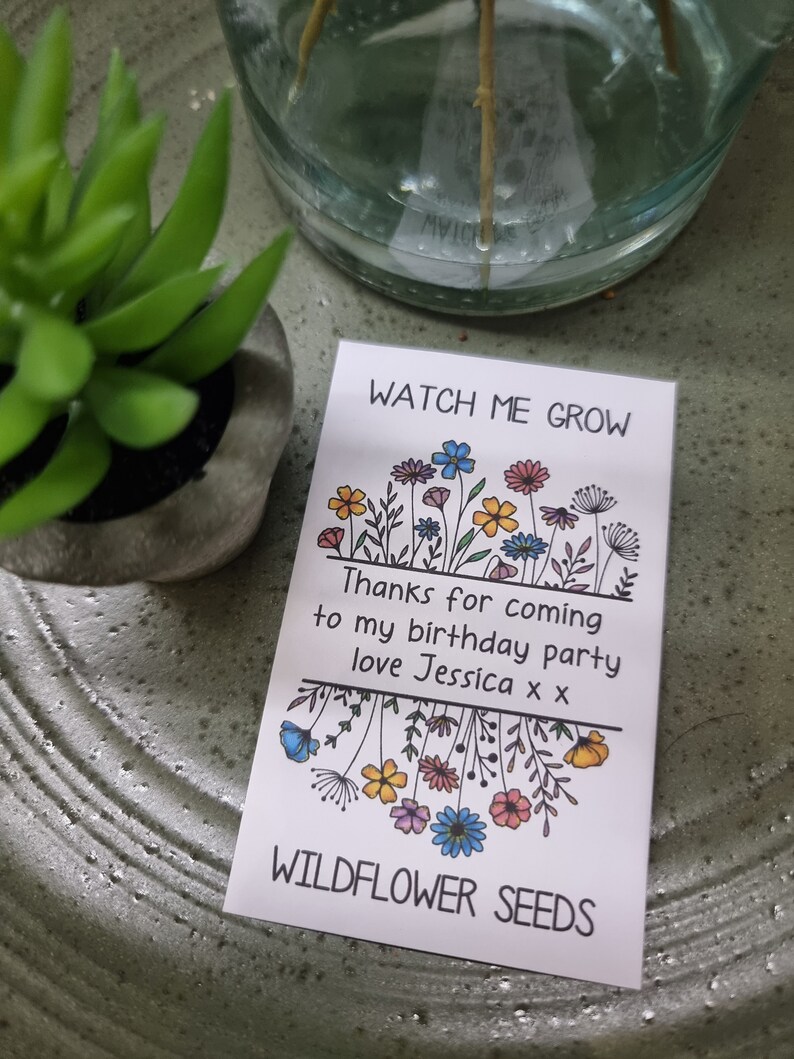 WATCH ME GROW
Thanks for coming
to my birthday party
love Jessica x x
WILDFLOWER SEEDS